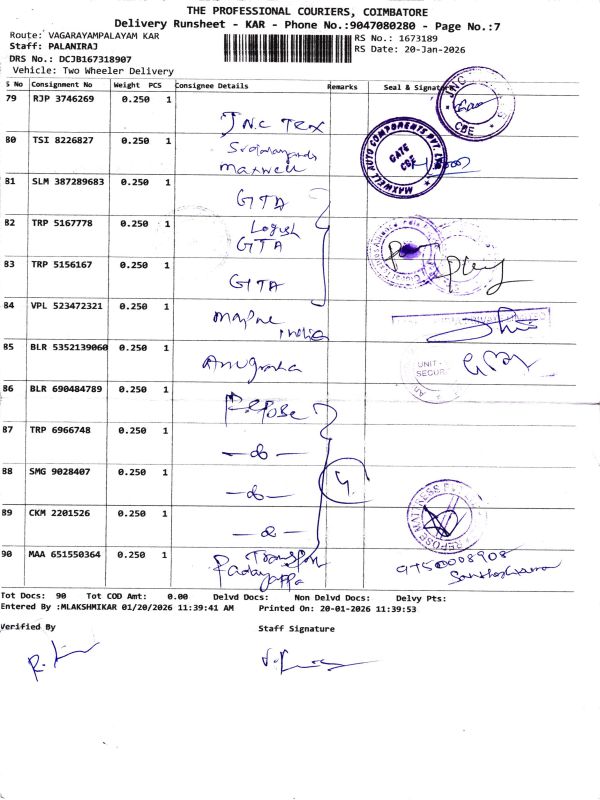 THE PROFESSIONAL COURIERS, COIMBATORE
Delivery Runsheet - KAR - Phone No.:9047080280 - Page No.:7
Route: VAGARAYAMPALAYAM KAR
RS No.: 1673189
Staff: PALANIRAJ
RS Date: 20-Jan-2026
DRS No.: DCJB167318907
Vehicle: Two Wheeler Delivery
S No Consignment No Weight PCS Consignee Details Remarks Seal & Signature
79 RJP 3746269 0.250 1
J.N.C Tex
JNC
CBE
80 TSI 8226827 0.250 1
Maxwell
MAXWELL AUTO COMPONENTS PVT. LTD.
GATE
CBE
81 SLM 387289683 0.250 1
GTA
82 TRP 5167778 0.250 1
GTA
83 TRP 5156167 0.250 1
GTA
84 VPL 523472321 0.250 1
India
85 BLR 5352139060 0.250 1
Anugraha
UNIT-
SECUR
86 BLR 690484789 0.250 1
Repose
87 TRP 6966748 0.250 1
-do-
88 SMG 9028407 0.250 1
-do-
4
89 CKM 2201526 0.250 1
-do-
REPOSE MATTRESS
90 MAA 651550364 0.250 1
Transport
Padayappa
Tot Docs: 90 Tot COD Amt: 0.00 Delvd Docs: Non Delvd Docs: Delvy Pts:
Entered By :MLAKSHMIKAR 01/20/2026 11:39:41 AM Printed On: 20-01-2026 11:39:53
Verified By Staff Signature